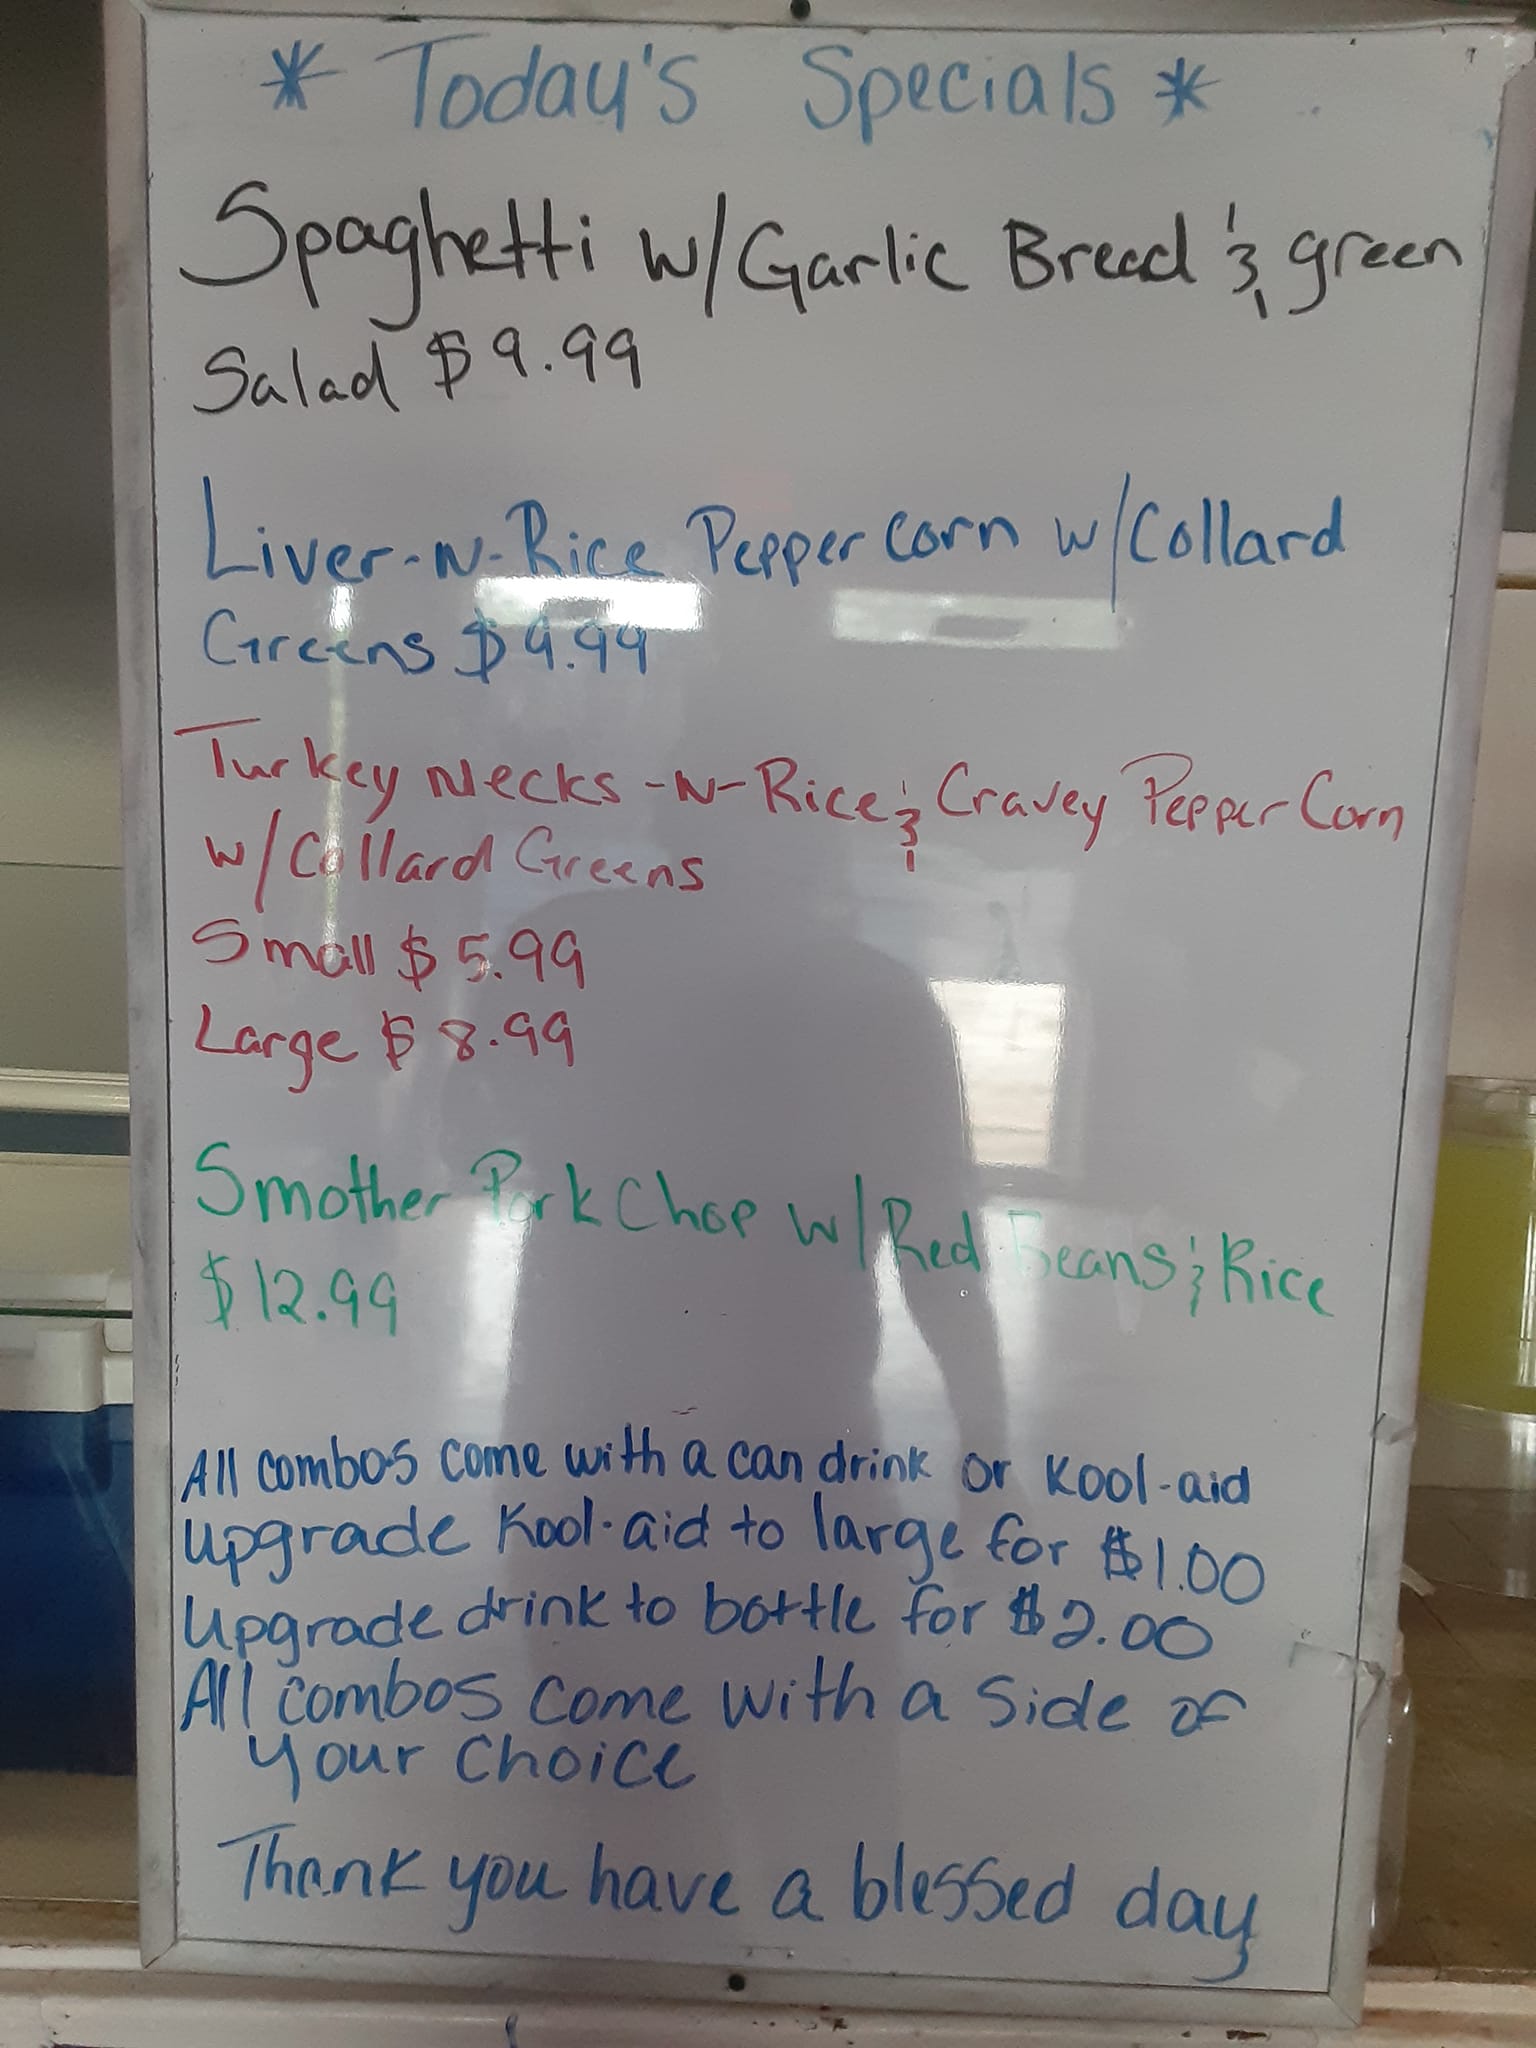 * Today's Specials *
Spaghetti w/Garlic Bread & green
Salad $9.99
Liver-N-Rice Pepper Corn w/Collard
Greens $9.99
Turkey Necks -N-Rice & Gravey Pepper Corn
w/Collard Greens
Small $5.99
Large $8.99
Smother Pork Chop w/Red Beans & Rice
$12.99
All combos come with a can drink or Kool-aid
upgrade Kool-aid to large for $1.00
upgrade drink to bottle for $2.00
All combos come with a side of
your choice
Thank you have a blessed day